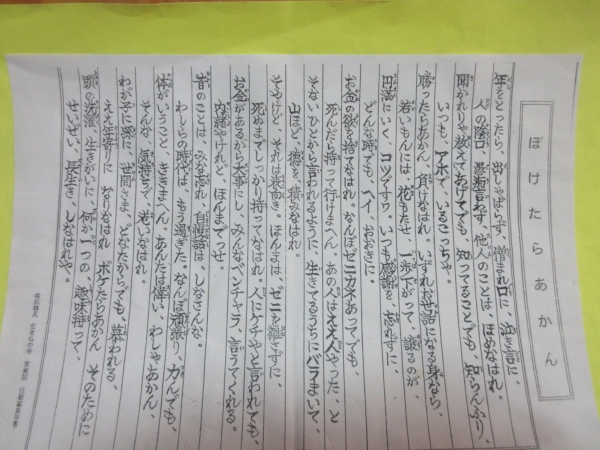 ぼけたらあかん
年をとったら、出しゃばらず、憎まれ口に、泣き言に、
人の陰口、愚痴言わず、他人のことは、ほめなはれ。
聞かれりゃ教えてあげてでも、知ってることでも、知らんふり、
いつも、アホで、いるこっちゃ。
勝ったらあかん、負けなはれ。いずれお世話になる身なら、
若いもんには、花もたせ、一歩下がって、譲るのが
円満にいく、コツですわ。いつも感謝を、忘れずに、
どんな時でも、ヘイ、おおきに。
お金の欲を捨てなはれ。なんぼゼニカネあっても、
死んだら持って行けまへん。あの人はええ人やった、と
そない、ひとから言われるように、生きてるうちにバラまいて、
山ほど、徳を、積みなはれ。
そやけど、それは表向き。ほんまは、ゼニを離さずに、
死ぬまでしっかり、持ってなはれ。人にケチやと言われても、
お金があるから大事にし、みんなベンチャラ、言うてくれる。
内緒やけれど、ほんまでっせ。
昔のことは、みな忘れ、自慢話は、しなさんな。
わしらの時代は、もう過ぎた。なんぼ頑張り、力んでも、
体がいうこと、ききまへん。あんたは偉い、わしゃあかん、
そんな気持ちで、おいなはれ。
わが子に孫に、世間さま、どなたからでも、慕われる、
ええ年寄りに なりなはれ ボケたらあかん そのために
頭の洗濯、生きがいに、何か一つの、趣味持って、
せいぜい、長生き、しなはれや。